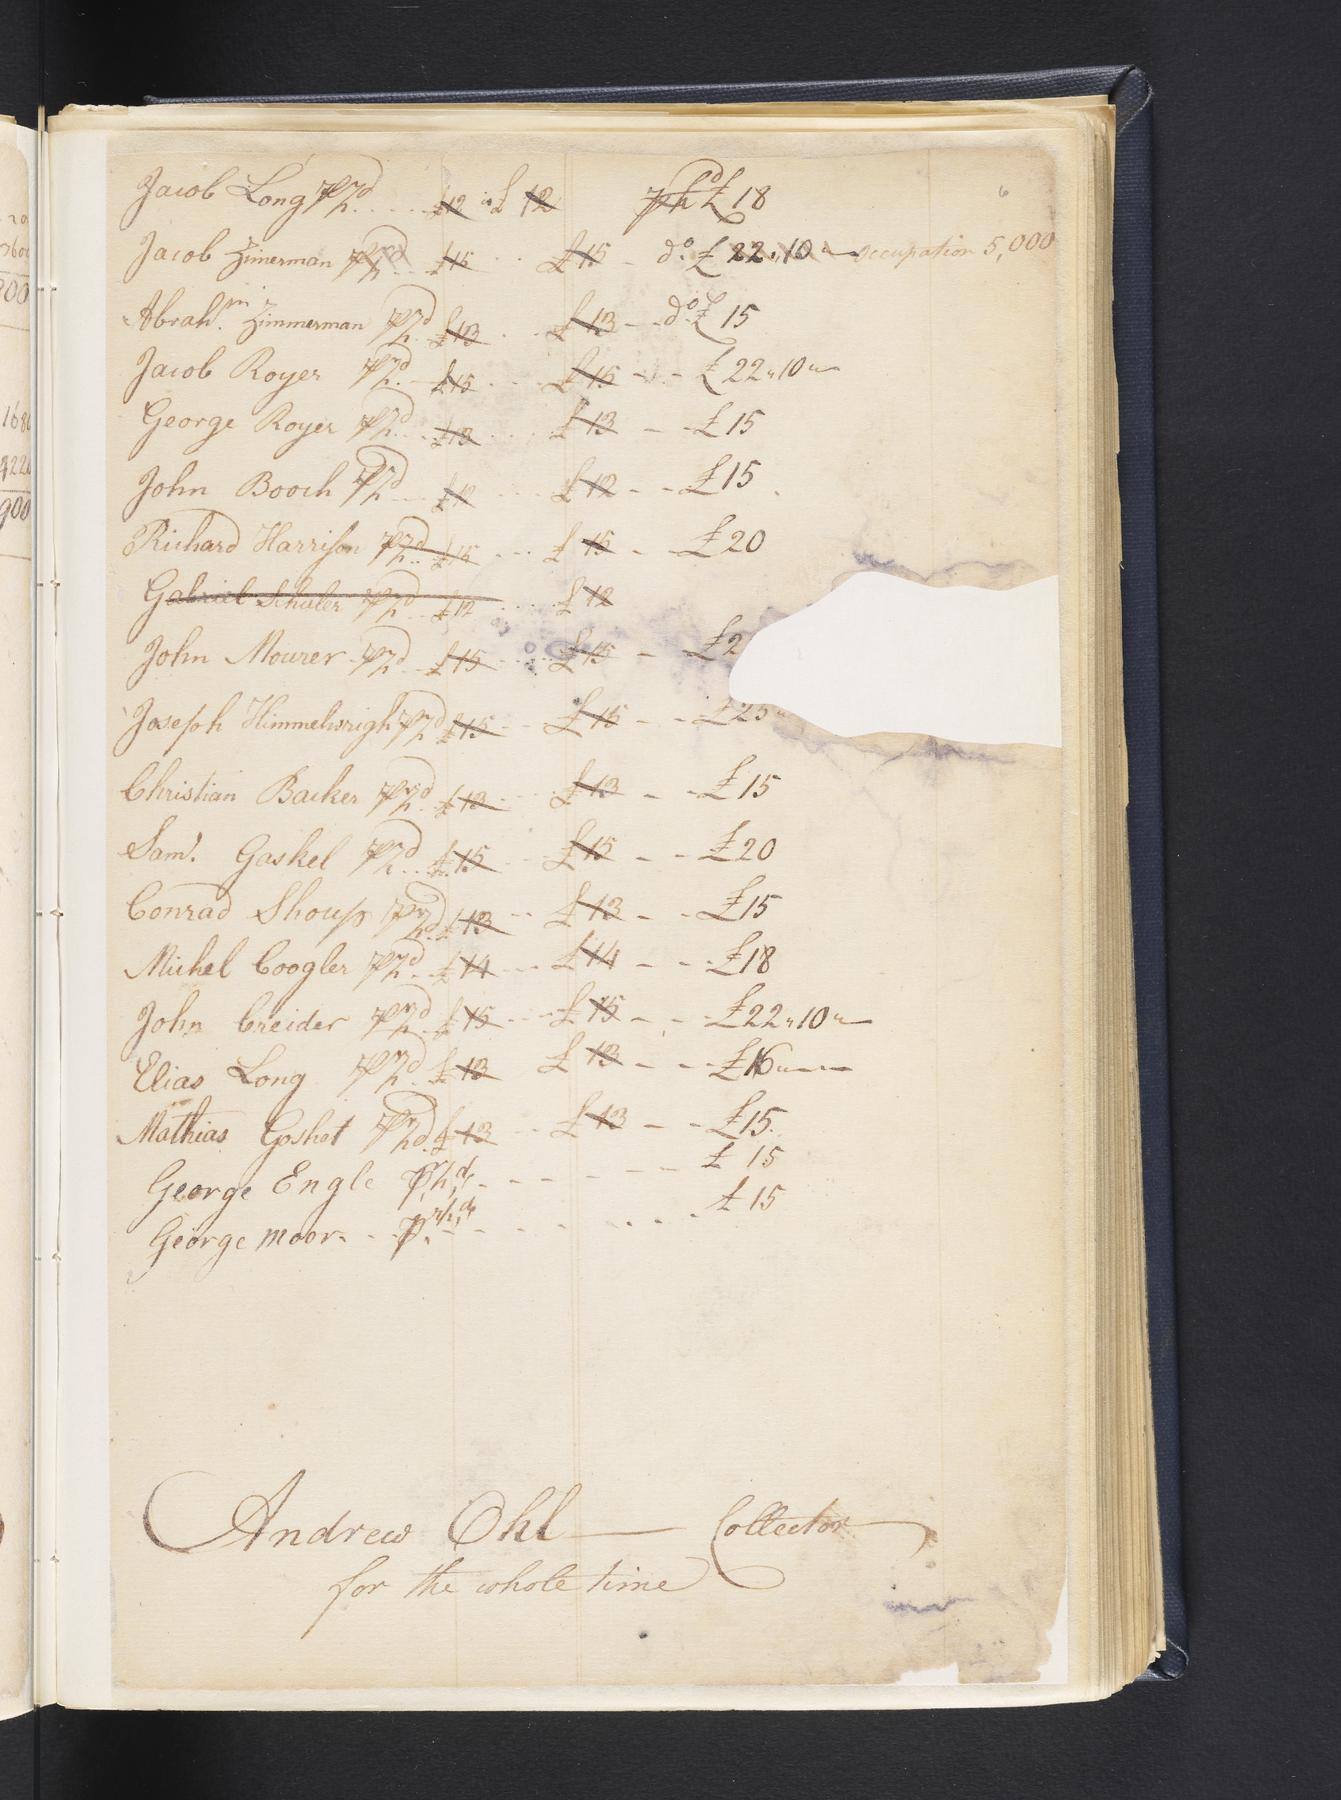 Jacob Long p hd .... £12 .. £12 p hd £18
6
Jacob Zimerman p hd £15 .. £15 - do £22"10" occupation 5,000
Abrahm Zimmerman p hd £13 ... £13 - do £15
Jacob Royer p hd £15 ... £15 - - £22"10"
George Royer p hd £13 ... £13 - - £15
John Booch p hd £12 ... £12 - - £15
Richard Harrison p hd £15 ... £15 - £20
Gabriel Schuler p hd £12 .... £12
John Mourer p hd £15 .... £15 - £2
Joseph Himmelwrigh p hd £15 - - £15 - - £25"
Christian Backer p hd £13 ... £13 - - £15
Saml. Gaskel p hd £15 ... £15 - - £20
Conrad Shoup p hd £13 -- £13 - - £15
Michel Coogler p hd £14 ... £14 - - £18
John Creider p hd £15 ... £15 - - £22"10"
Elias Long p hd £13 £13 - - £16
Mathias Goshet p hd £13 .. £13 - - £15
George Engle pr hd - - - - - - £ 15
George moor - - pr hd - - - - - £ 15
Andrew Ohl — Collector
for the whole time